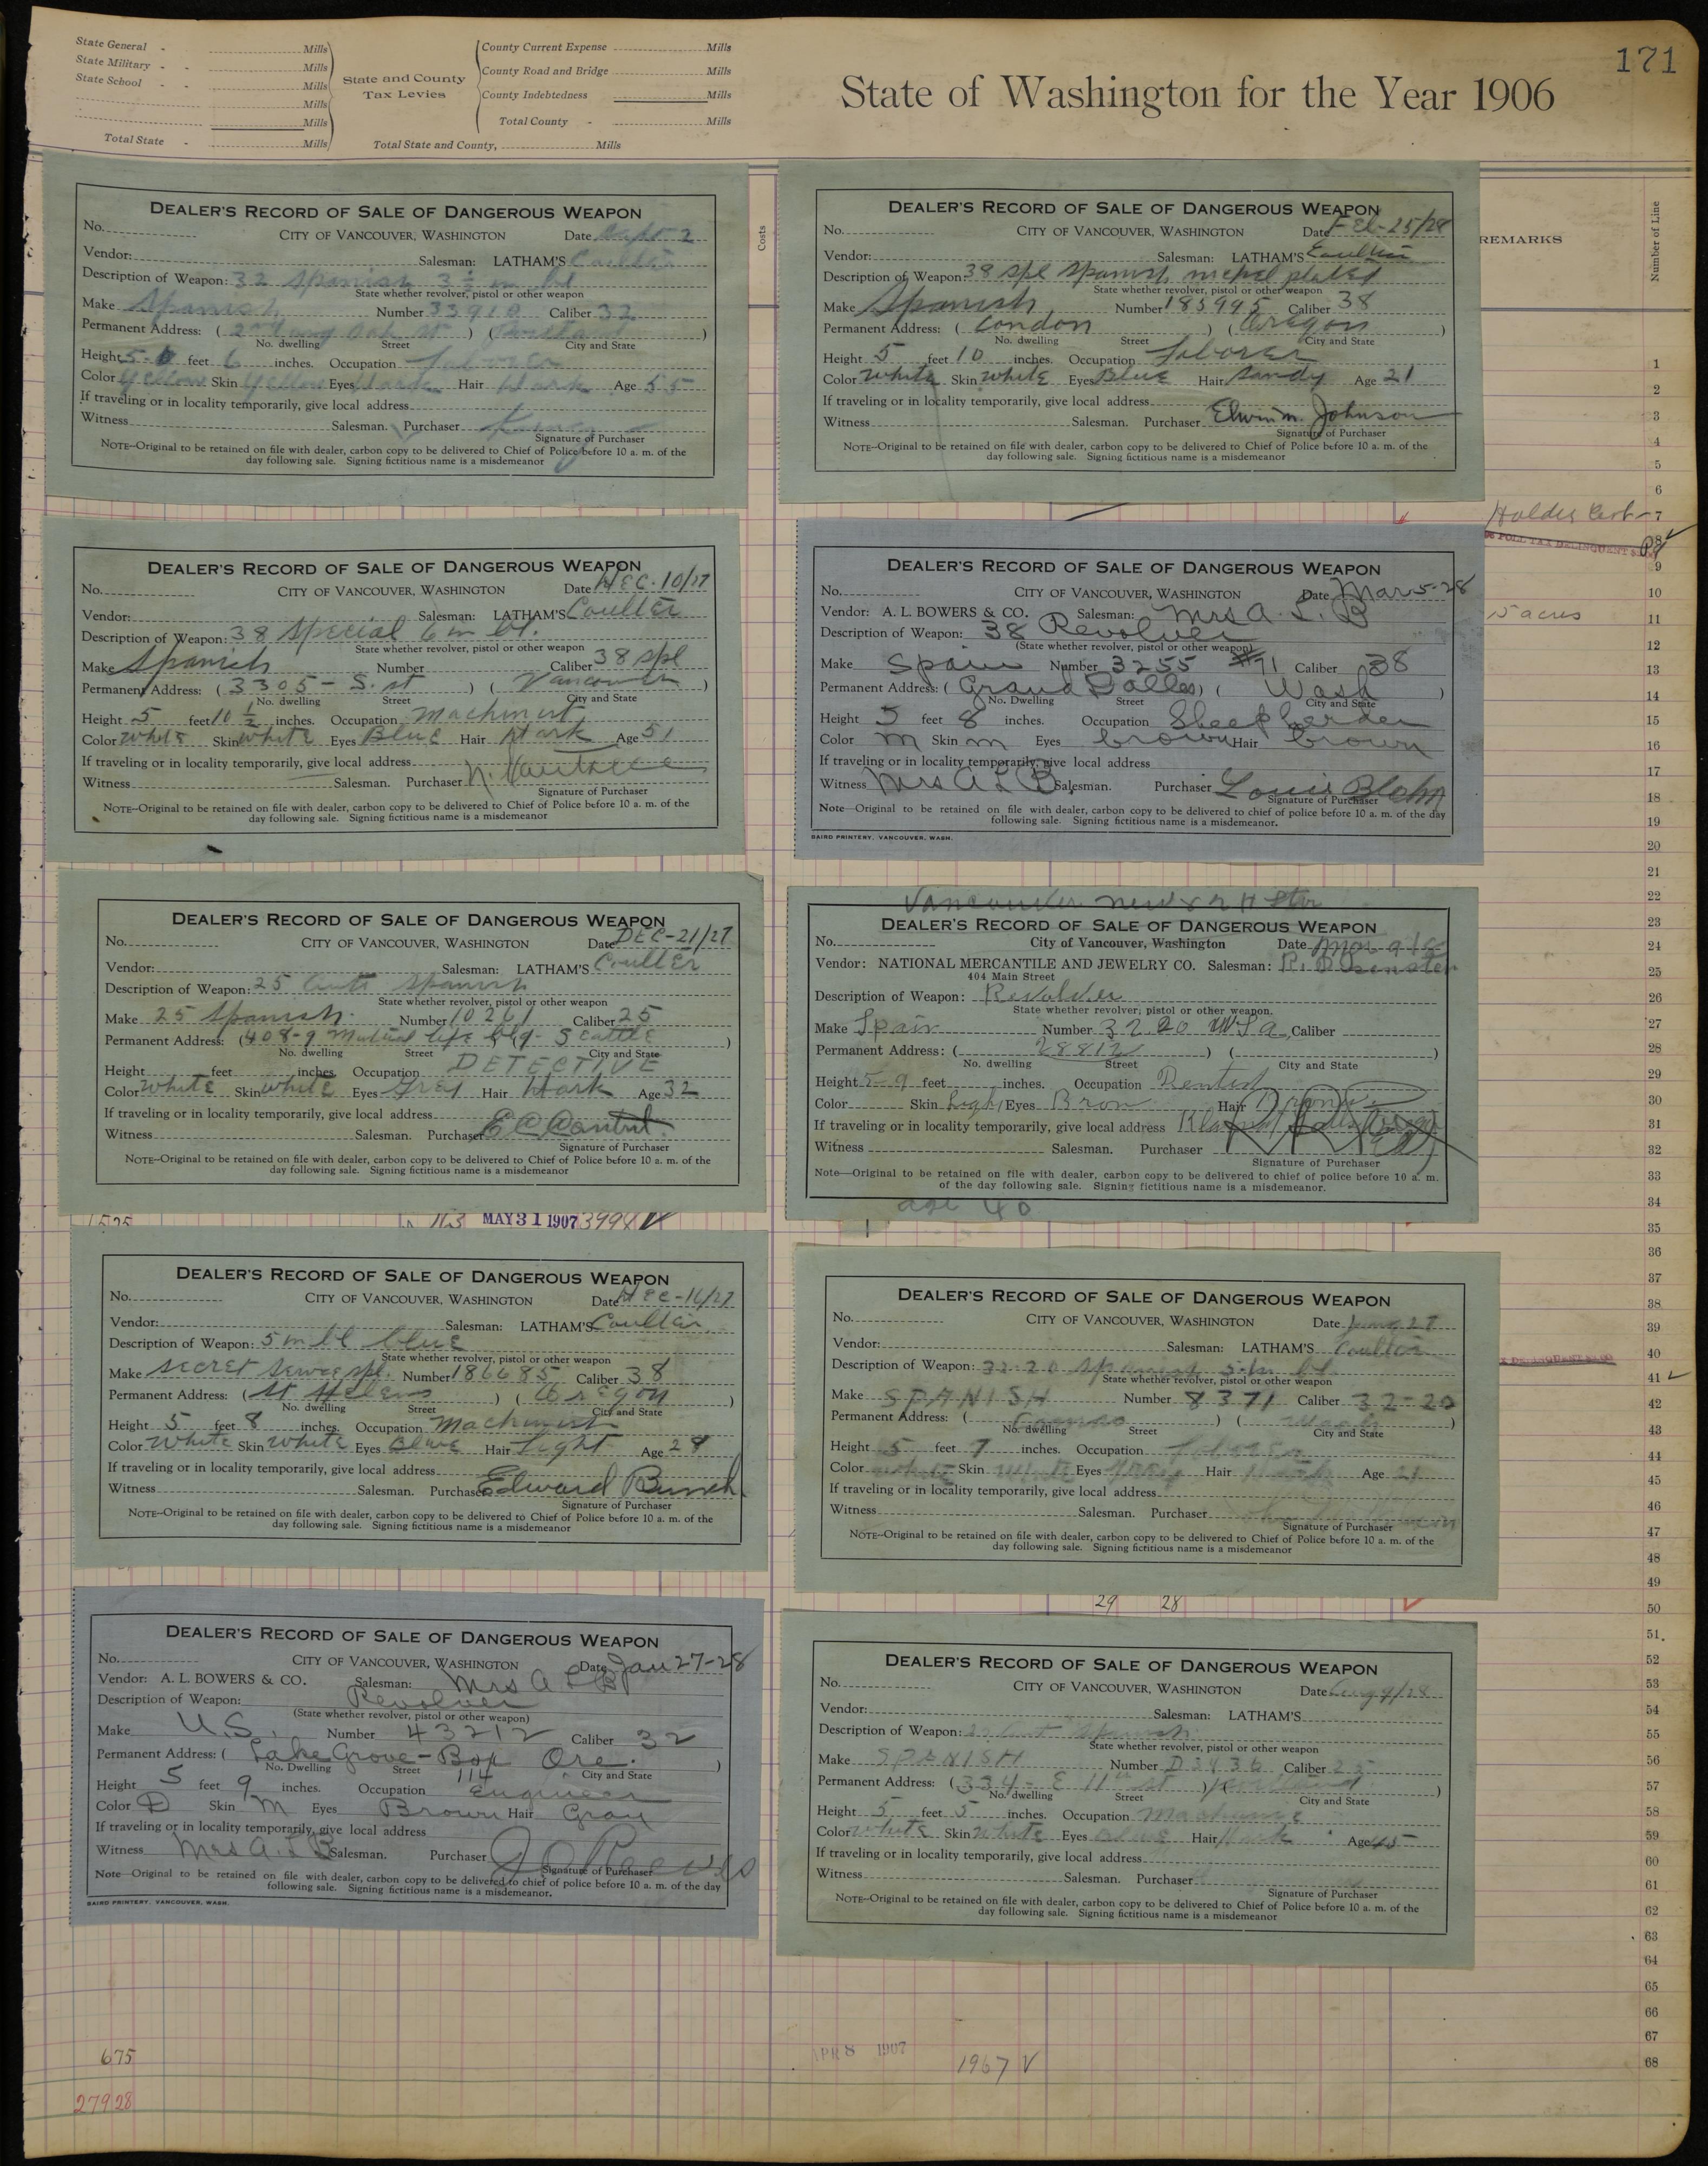 171
State General - Mills
State Military - - Mills
State School - - Mills
Mills
Mills
Total State - Mills
State and County
Tax Levies
County Current Expense Mills
County Road and Bridge Mills
County Indebtedness Mills
Total County - Mills
Total State and County, Mills
State of Washington for the Year 1906
Costs
REMARKS
Number of Line
DEALER'S RECORD OF SALE OF DANGEROUS WEAPON
No. CITY OF VANCOUVER, WASHINGTON Date Sept 2
Vendor: Salesman: LATHAM'S Coulter
Description of Weapon: 32 Spanish 3½ in bl
State whether revolver, pistol or other weapon
Make Spanish Number 33910 Caliber 32
Permanent Address: ( 2nd and Oak St ) ( Portland )
No. dwelling Street City and State
Height 5- feet 6 inches. Occupation Laborer
Color Yellow Skin Yellow Eyes Dark Hair Dark Age 55
If traveling or in locality temporarily, give local address
Witness Salesman. Purchaser
Signature of Purchaser
NOTE--Original to be retained on file with dealer, carbon copy to be delivered to Chief of Police before 10 a. m. of the
day following sale. Signing fictitious name is a misdemeanor
DEALER'S RECORD OF SALE OF DANGEROUS WEAPON
No. CITY OF VANCOUVER, WASHINGTON Date FEb-25/28
Vendor: Salesman: LATHAM'S Coulter
Description of Weapon: 38 spl Spanish nickel plated
State whether revolver, pistol or other weapon
Make Spanish Number 185995 Caliber 38
Permanent Address: ( London ) ( Oregon )
No. dwelling Street City and State
Height 5 feet 10 inches. Occupation Laborer
Color White Skin White Eyes Blue Hair Sandy Age 21
If traveling or in locality temporarily, give local address
Witness Salesman. Purchaser Elwin m. Johnson
Signature of Purchaser
NOTE--Original to be retained on file with dealer, carbon copy to be delivered to Chief of Police before 10 a. m. of the
day following sale. Signing fictitious name is a misdemeanor
DEALER'S RECORD OF SALE OF DANGEROUS WEAPON
No. CITY OF VANCOUVER, WASHINGTON Date DEC-10/27
Vendor: Salesman: LATHAM'S Coulter
Description of Weapon: 38 Special 6 in bl.
State whether revolver, pistol or other weapon
Make Spanish Number Caliber 38 spl
Permanent Address: ( 3305- S. st ) ( Vancouver )
No. dwelling Street City and State
Height 5 feet 10 ½ inches. Occupation Machinist
Color White Skin White Eyes Blue Hair Dark Age 51
If traveling or in locality temporarily, give local address
Witness Salesman. Purchaser N.
Signature of Purchaser
NOTE--Original to be retained on file with dealer, carbon copy to be delivered to Chief of Police before 10 a. m. of the
day following sale. Signing fictitious name is a misdemeanor
DEALER'S RECORD OF SALE OF DANGEROUS WEAPON
No. CITY OF VANCOUVER, WASHINGTON Date Mar 5-28
Vendor: A. L. BOWERS & CO. Salesman: Mrs A. L. B
Description of Weapon: 38 Revolver
(State whether revolver, pistol or other weapon)
Make Spain Number 3255 #71 Caliber 38
Permanent Address: ( Grand Dalles ) ( Wash )
No. Dwelling Street City and State
Height 5 feet 8 inches. Occupation Sheepherder
Color M Skin M Eyes brown Hair brown
If traveling or in locality temporarily, give local address
Witness Mrs A L B Salesman. Purchaser Louis Blehn
Signature of Purchaser
Note--Original to be retained on file with dealer, carbon copy to be delivered to chief of police before 10 a. m. of the day
following sale. Signing fictitious name is a misdemeanor.
BAIRD PRINTERY, VANCOUVER, WASH.
DEALER'S RECORD OF SALE OF DANGEROUS WEAPON
No. CITY OF VANCOUVER, WASHINGTON Date DEC-21/27
Vendor: Salesman: LATHAM'S Coulter
Description of Weapon: 25 Auto Spanish
State whether revolver, pistol or other weapon
Make 25 Spanish Number 10261 Caliber 25
Permanent Address: ( 408-9 Mutual Life blg- Seattle )
No. dwelling Street City and State
Height feet inches. Occupation DETECTIVE
Color White Skin White Eyes Grey Hair Dark Age 32
If traveling or in locality temporarily, give local address
Witness Salesman. Purchaser E C
Signature of Purchaser
NOTE--Original to be retained on file with dealer, carbon copy to be delivered to Chief of Police before 10 a. m. of the
day following sale. Signing fictitious name is a misdemeanor
Vancouver
DEALER'S RECORD OF SALE OF DANGEROUS WEAPON
No. City of Vancouver, Washington Date Mar 9
Vendor: NATIONAL MERCANTILE AND JEWELRY CO. Salesman:
404 Main Street
Description of Weapon: Revolver
State whether revolver, pistol or other weapon.
Make Spain Number 32.20 Caliber
Permanent Address: ( 28812 ) ( )
No. dwelling Street City and State
Height 5-9 feet inches. Occupation Dentist
Color Skin Light Eyes Brow Hair Brow
If traveling or in locality temporarily, give local address
Witness Salesman. Purchaser
Signature of Purchaser
Note--Original to be retained on file with dealer, carbon copy to be delivered to chief of police before 10 a. m.
of the day following sale. Signing fictitious name is a misdemeanor.
age 40
MAY 31 1907 3994 V
DEALER'S RECORD OF SALE OF DANGEROUS WEAPON
No. CITY OF VANCOUVER, WASHINGTON Date DEC-16/27
Vendor: Salesman: LATHAM'S Coulter
Description of Weapon: 5 in bl blue
State whether revolver, pistol or other weapon
Make Secret Service spl. Number 186685 Caliber 38
Permanent Address: ( St Helens ) ( Oregon )
No. dwelling Street City and State
Height 5 feet 8 inches. Occupation Machinist
Color White Skin White Eyes Blue Hair Light Age 29
If traveling or in locality temporarily, give local address
Witness Salesman. Purchaser Edward Bunch.
Signature of Purchaser
NOTE--Original to be retained on file with dealer, carbon copy to be delivered to Chief of Police before 10 a. m. of the
day following sale. Signing fictitious name is a misdemeanor
DEALER'S RECORD OF SALE OF DANGEROUS WEAPON
No. CITY OF VANCOUVER, WASHINGTON Date
Vendor: Salesman: LATHAM'S Coulter
Description of Weapon: 32-20 Spanish 5 in bl
State whether revolver, pistol or other weapon
Make SPANISH Number 8371 Caliber 32-20
Permanent Address: ( Camas ) ( Wash )
No. dwelling Street City and State
Height 5 feet 7 inches. Occupation Laborer
Color White Skin White Eyes Grey Hair Dark Age 21
If traveling or in locality temporarily, give local address
Witness Salesman. Purchaser
Signature of Purchaser
NOTE--Original to be retained on file with dealer, carbon copy to be delivered to Chief of Police before 10 a. m. of the
day following sale. Signing fictitious name is a misdemeanor
29 28
DEALER'S RECORD OF SALE OF DANGEROUS WEAPON
No. CITY OF VANCOUVER, WASHINGTON Date Jan 27-28
Vendor: A. L. BOWERS & CO. Salesman: Mrs A L B
Description of Weapon: Revolver
(State whether revolver, pistol or other weapon)
Make U.S. Number 43212 Caliber 32
Permanent Address: ( Lake Grove- Box 114 Ore. )
No. Dwelling Street City and State
Height 5 feet 9 inches. Occupation Engineer
Color D Skin M Eyes Brown Hair Gray
If traveling or in locality temporarily, give local address
Witness Mrs A. L B Salesman. Purchaser J O Reeves
Signature of Purchaser
Note--Original to be retained on file with dealer, carbon copy to be delivered to chief of police before 10 a. m. of the day
following sale. Signing fictitious name is a misdemeanor.
BAIRD PRINTERY, VANCOUVER, WASH.
DEALER'S RECORD OF SALE OF DANGEROUS WEAPON
No. CITY OF VANCOUVER, WASHINGTON Date Aug 9/28
Vendor: Salesman: LATHAM'S
Description of Weapon: 25 Aut Spanish
State whether revolver, pistol or other weapon
Make SPANISH Number D3836 Caliber 25
Permanent Address: ( 334- E 11th St ) ( Portland )
No. dwelling Street City and State
Height 5 feet 5 inches. Occupation Machinist
Color White Skin White Eyes Blue Hair Dark Age 45
If traveling or in locality temporarily, give local address
Witness Salesman. Purchaser
Signature of Purchaser
NOTE--Original to be retained on file with dealer, carbon copy to be delivered to Chief of Police before 10 a. m. of the
day following sale. Signing fictitious name is a misdemeanor
1
2
3
4
5
6
Holder Cert- 7
8
9
10
5 acres 11
12
13
14
15
16
17
18
19
20
21
22
23
24
25
26
27
28
29
30
31
32
33
34
35
36
37
38
39
40
41
42
43
44
45
46
47
48
49
50
51
52
53
54
55
56
57
58
59
60
61
62
63
64
65
66
67
68
675
27928
APR 8 1907
1967 V